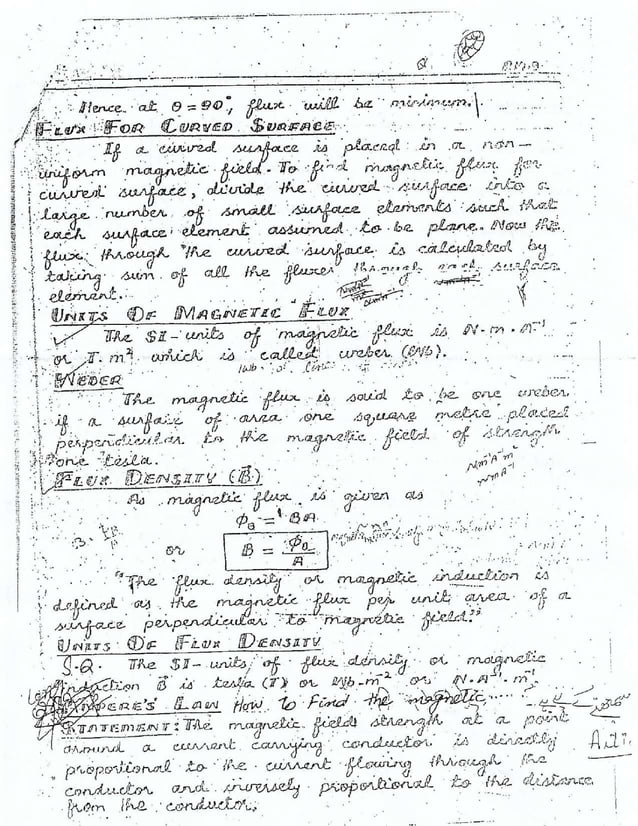 Hence at θ = 90°, flux will be minimum.
FLUX FOR CURVED SURFACE
If a curved surface is placed in a non-
uniform magnetic field. To find magnetic flux for
curved surface, divide the curved surface into a
large number of small surface elements such that
each surface element assumed to be plane. Now the
flux through the curved surface is calculated by
taking sum of all the fluxes through each surface
element.
UNITS OF MAGNETIC FLUX
The SI-units of magnetic flux is N.m.A⁻¹
or T.m² which is called weber (Wb).
WEBER
The magnetic flux is said to be one weber
if a surface of area one square metre placed
perpendicular to the magnetic field of strength
one tesla.
FLUX DENSITY (B)
Nm⁻¹A⁻¹m
NmA⁻¹
As magnetic flux is given as
Φ_B = BA
or B = Φ_B/A
"The flux density or magnetic induction is
defined as the magnetic flux per unit area of a
surface perpendicular to magnetic field."
UNITS OF FLUX DENSITY
S.Q. The SI-units of flux density or magnetic
induction B is tesla (T) or Wb-m⁻² or N.A⁻¹.m⁻¹
AMPERE'S LAW How To Find the magnetic
STATEMENT: The magnetic field strength at a point
around a current carrying conductor is directly
proportional to the current flowing through the
conductor and inversely proportional to the distance
from the conductor,